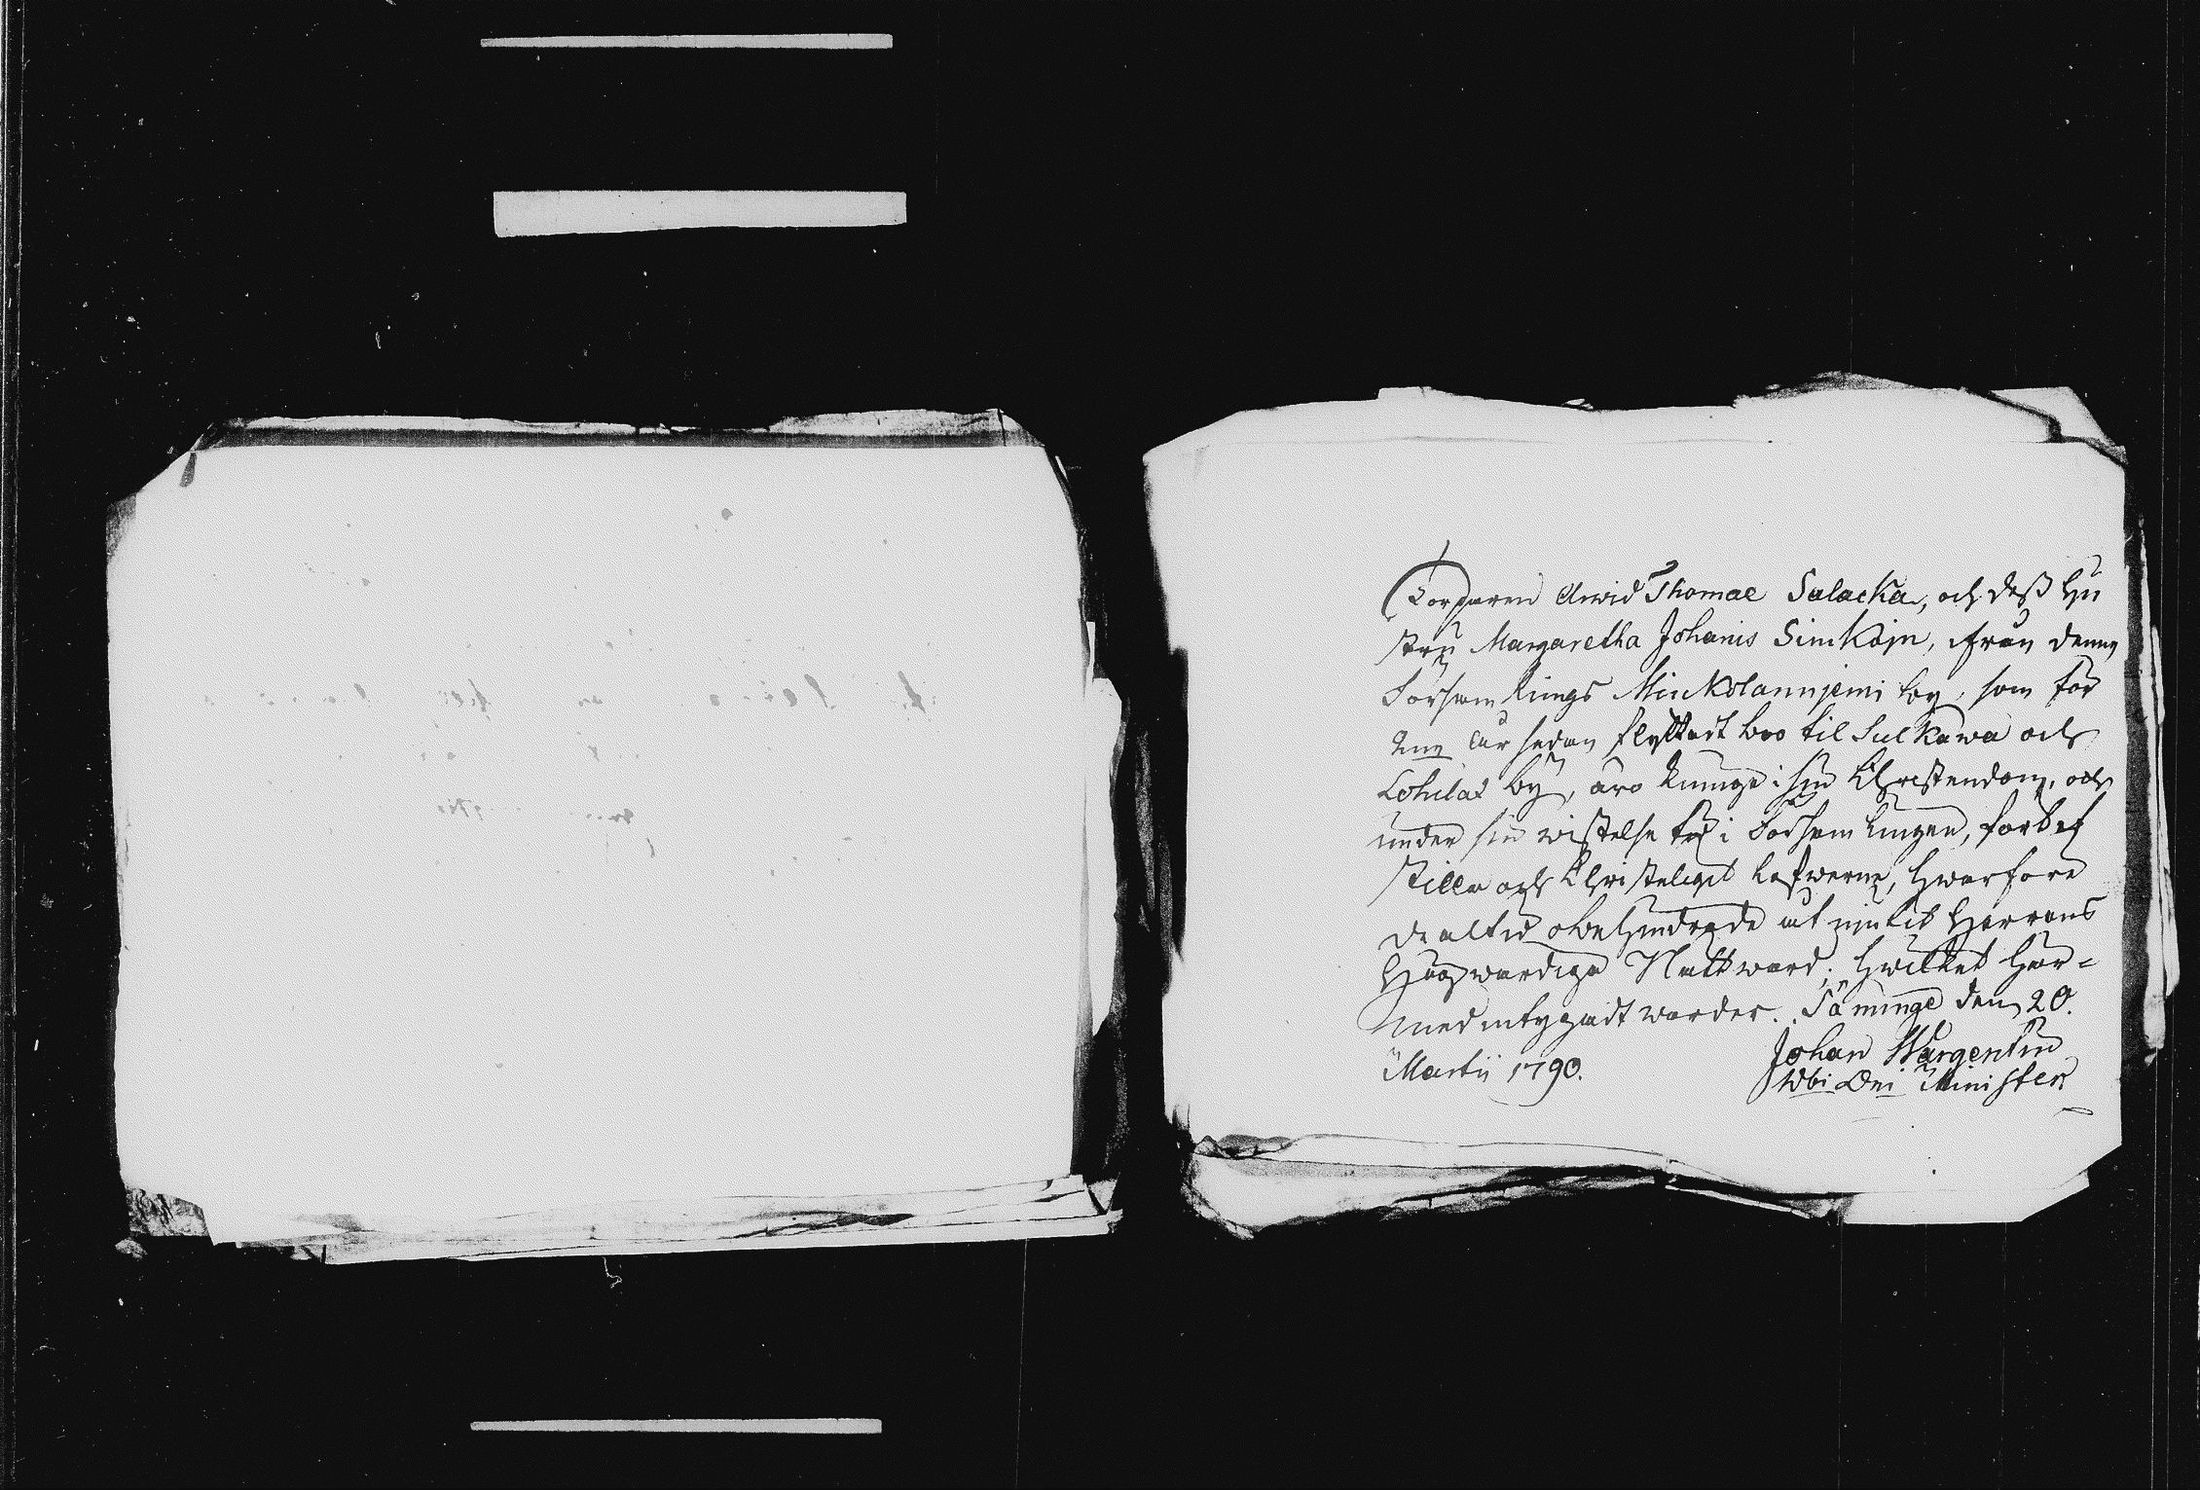 Torparen Arwid Thomae Salacka, och dess Hu
stru Margaretha Johanis Simkoin, från denna
Församlings Miukolannjemi by, som för
år sedan flyttadt boo til Sulkawa och
Lohilax by, äro kunnige i sin Christendom, och
under sin wistelse här i Församlingen, fördt et
stilla och Christeligit lefwerne, hwarföre
de altid obehindrade åtnjutit Herrans
Högwärdiga Nattward; hwilket här=
med intygadt warder. Säminge den 20.
Martii 1790. Johan Wargentin
Wbi Dni Minister